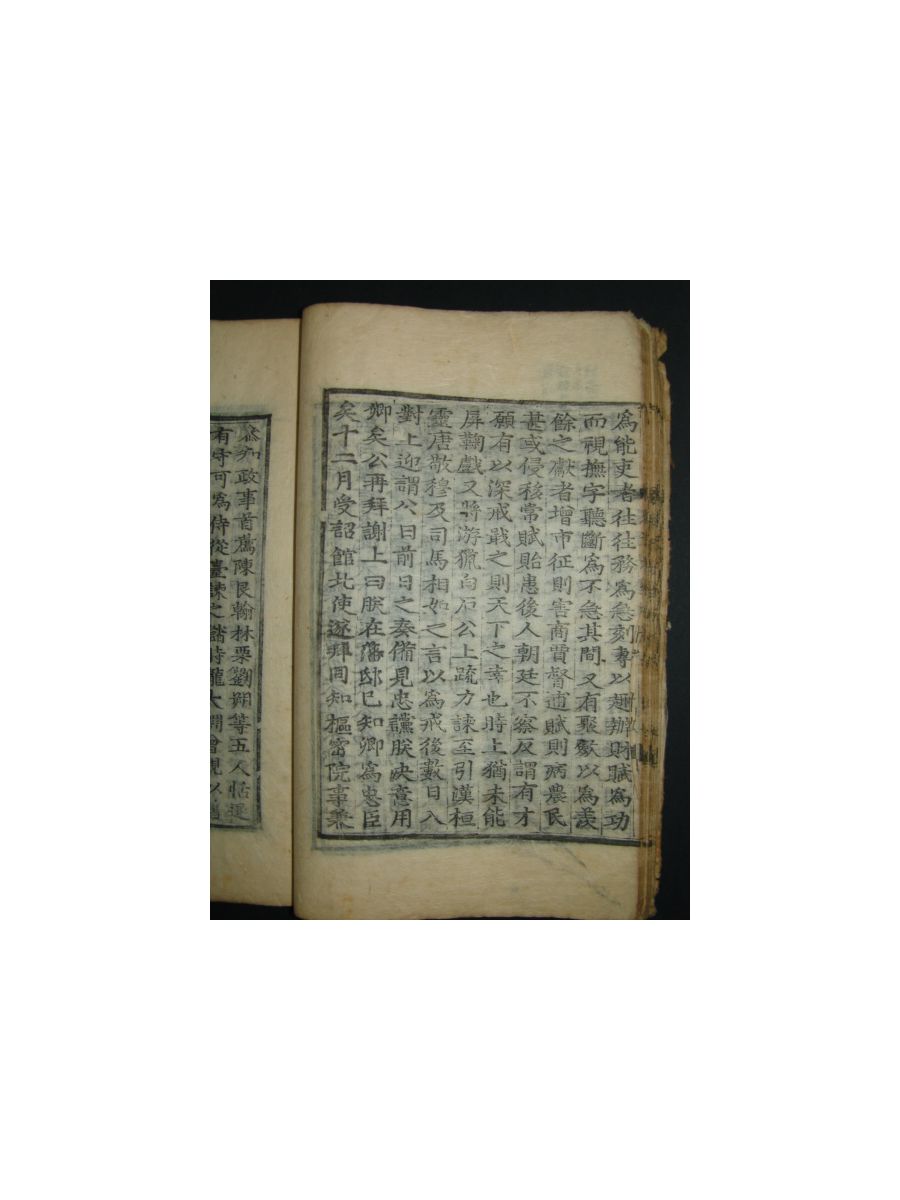 爲能吏者往往務爲急刻專以趣辦財賦爲功
而視撫字聽斷爲不急其間又有聚斂以爲羨
餘之獻者增市征則害商賈督逋賦則病農民
甚或侵移常賦貽患後人朝廷不察反謂有才
願有以深戒戢之則天下之幸也時上猶未能
屏鞠戲又將游獵白石公上疏力諫至引漢桓
靈唐敬穆及司馬相如之言以爲戒後數日入
對上迎謂公曰前日之奏備見忠讜朕决意用
卿矣公再拜謝上曰朕在藩邸已知卿爲忠臣
矣十二月受詔館北使遂拜同知樞密院事兼
參知政事首薦陳良翰林栗劉朔等五人恬退
有守可爲侍從臺諫之 時龍大淵曾覿以